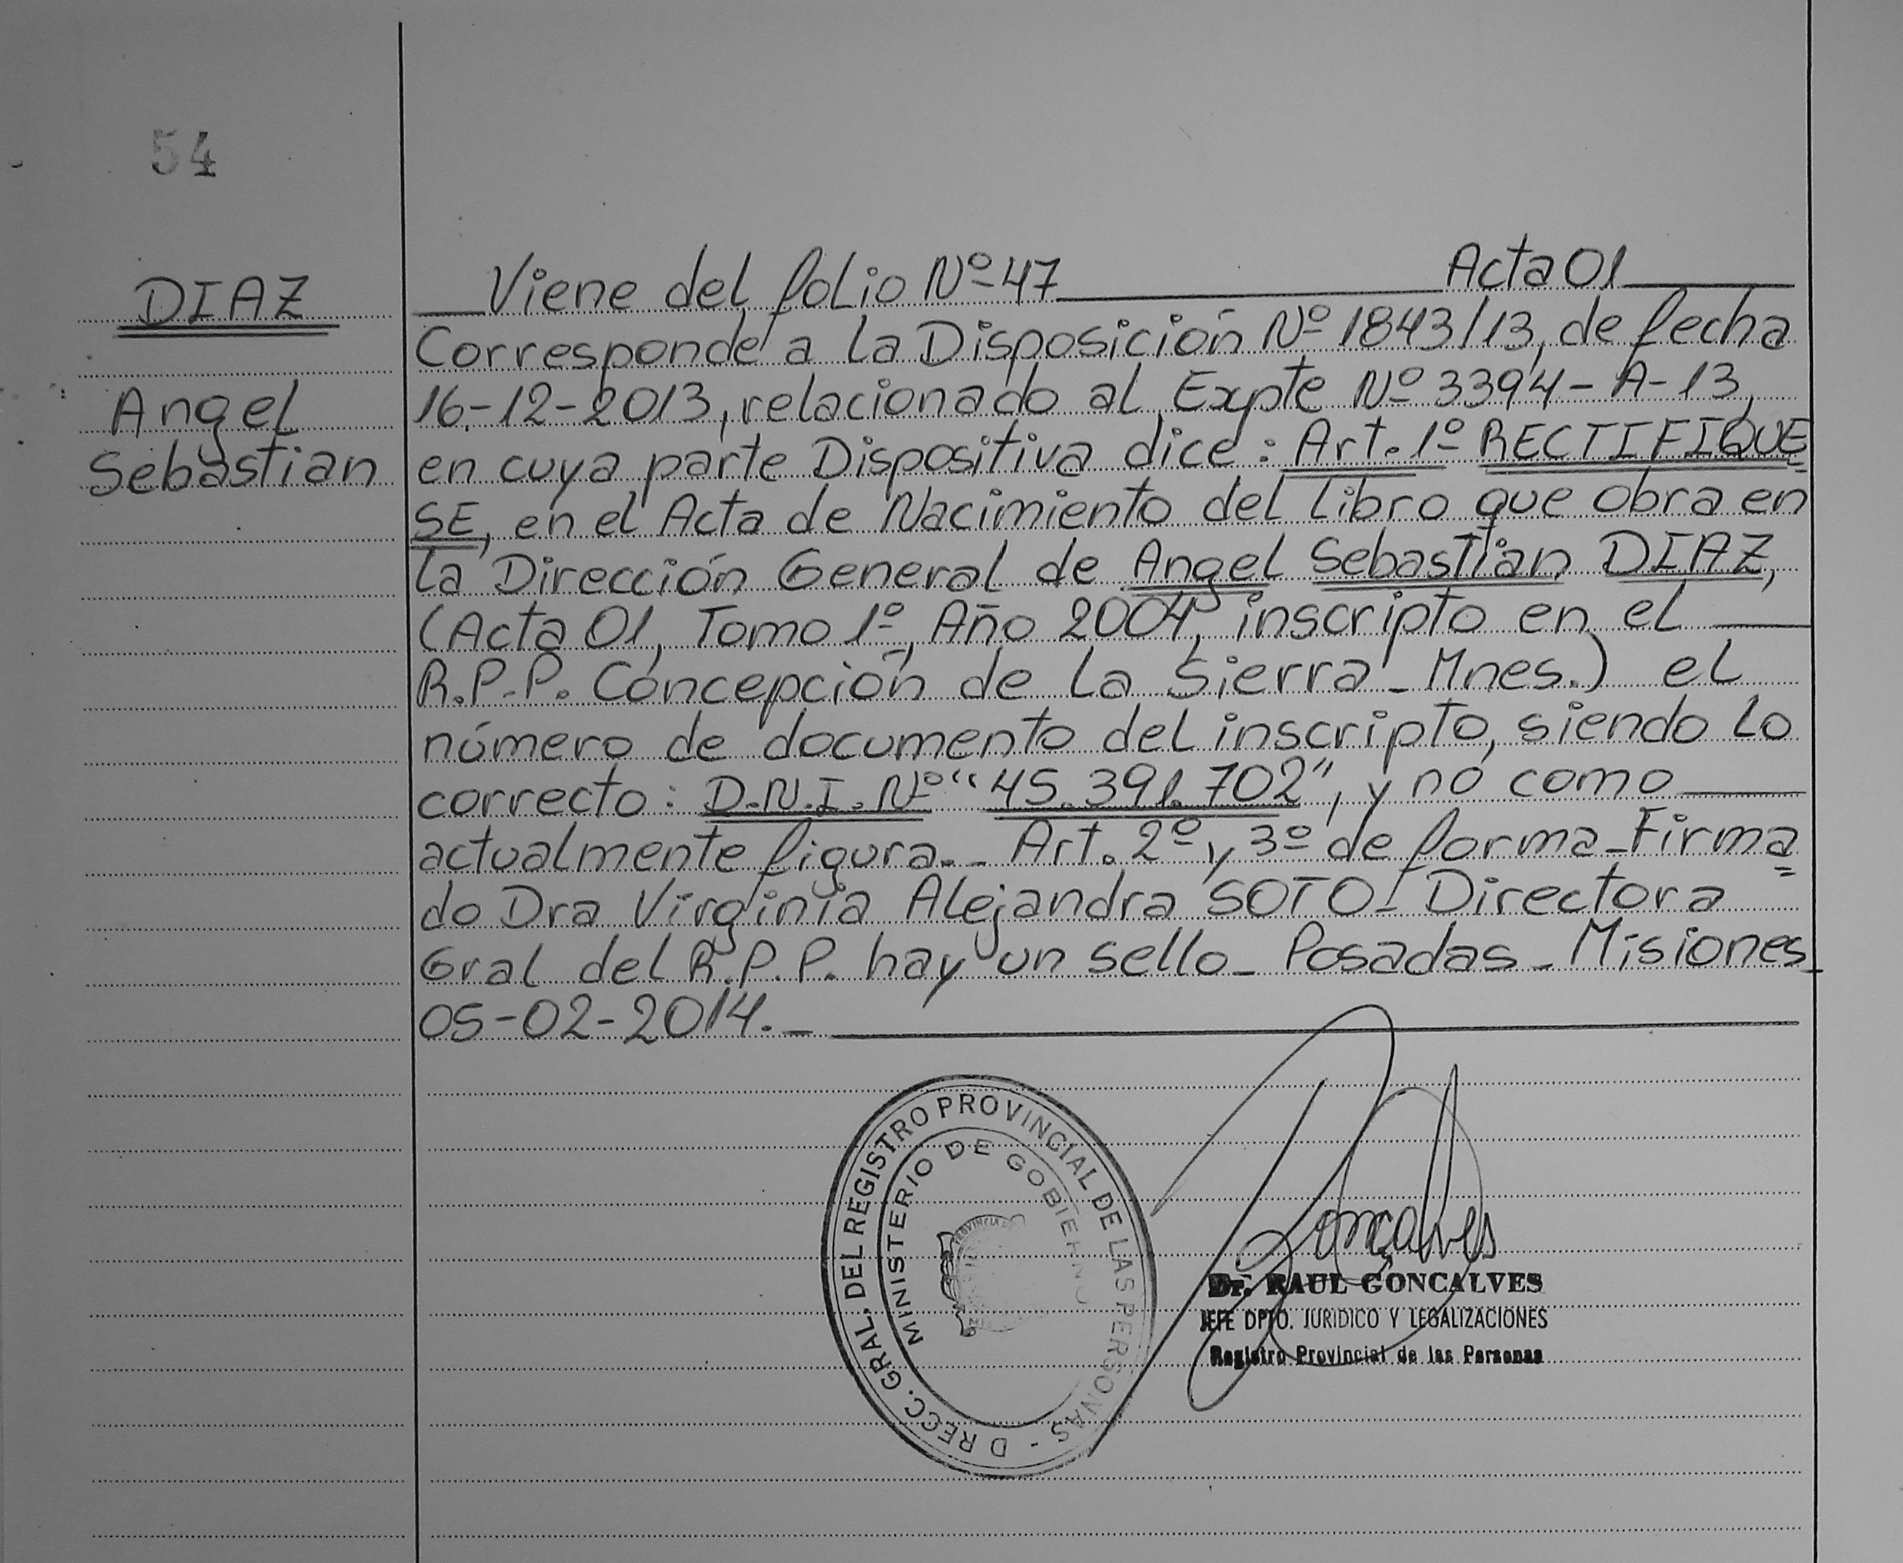 54
DIAZ
Angel
Sebastian
Viene del folio Nº 47 Acta 01
Corresponde a la Disposición Nº 1843/13, de fecha
16-12-2013, relacionado al Expte Nº 3394-A-13,
en cuya parte Dispositiva dice: Art. 1º RECTIFIQUE
SE, en el Acta de Nacimiento del Libro que obra en
la Dirección General de Angel Sebastian DIAZ,
(Acta 01, Tomo 1º, Año 2004, inscripto en el
R.P.P. Concepción de la Sierra - Mnes.) el
número de documento del inscripto, siendo lo
correcto: D.N.I. Nº "45.391.702", y no como
actualmente figura.- Art. 2º y 3º de forma - Firma
do Dra Virginia Alejandra SOTO - Directora
Gral del R.P.P. hay un sello - Posadas - Misiones
05-02-2014.-
DIRECC. GRAL. DEL REGISTRO PROVINCIAL DE LAS PERSONAS -
MINISTERIO DE GOBIERNO
Gonçalves
Dr. RAUL GONCALVES
JEFE DPTO. JURIDICO Y LEGALIZACIONES
Registro Provincial de las Personas